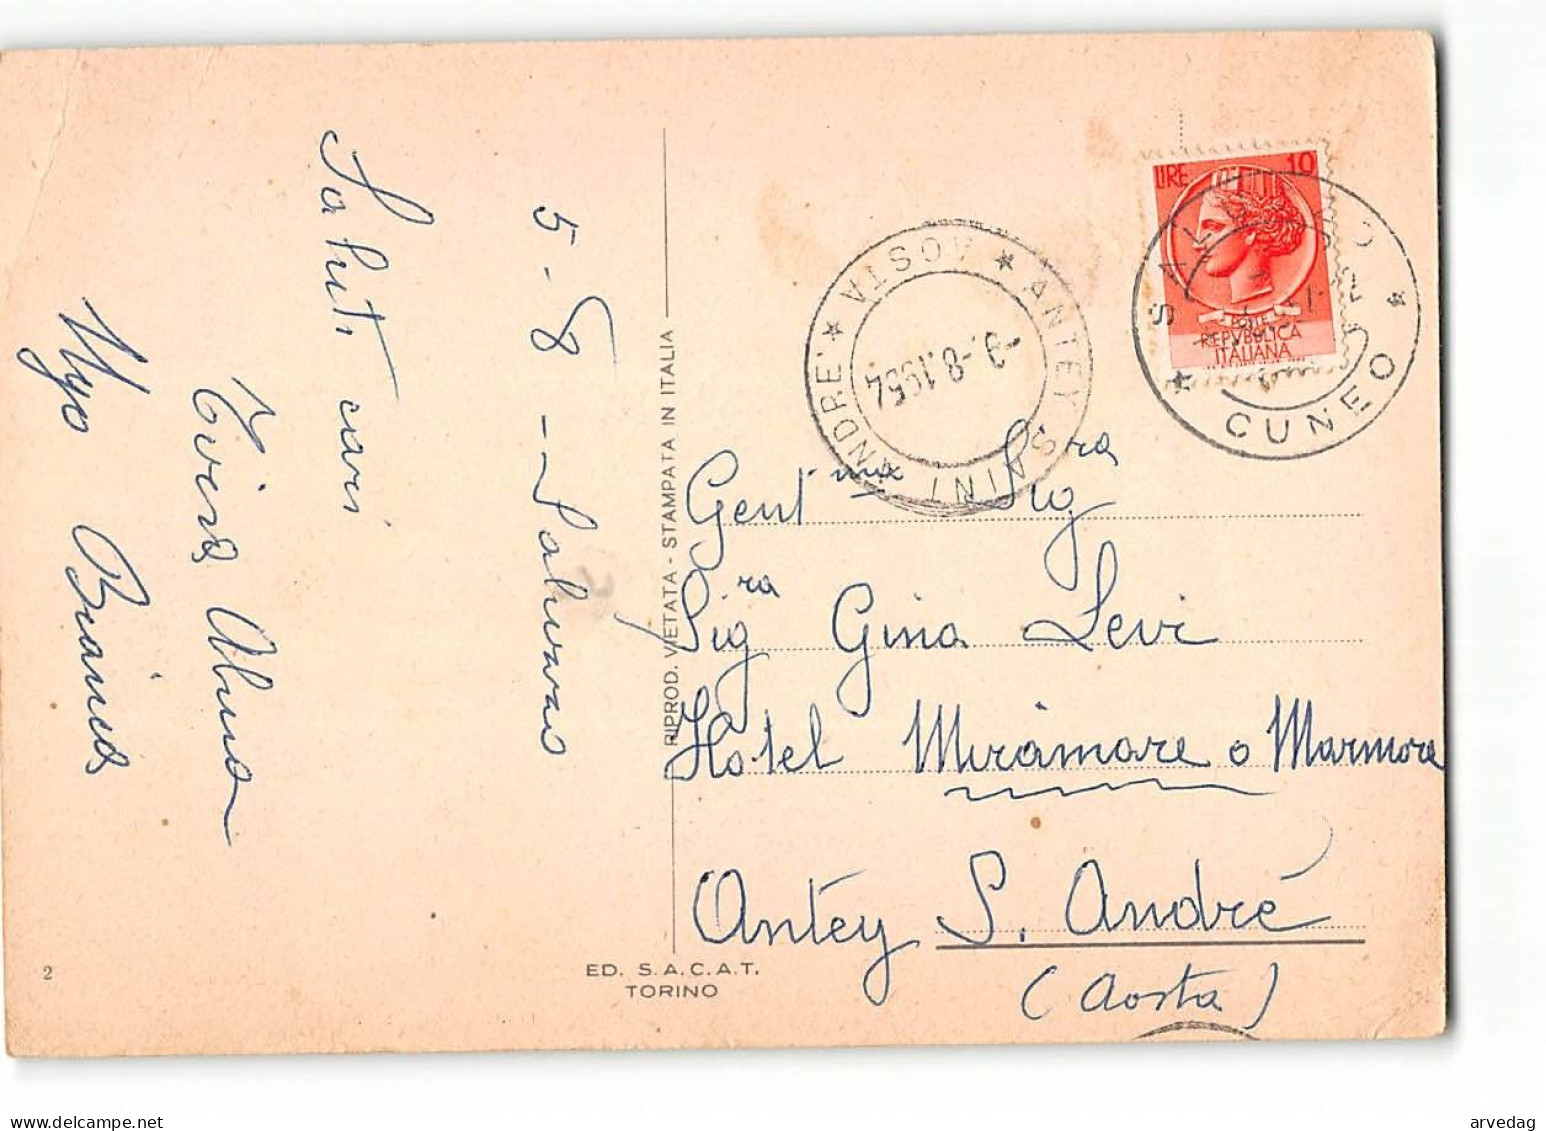 5-8-Saluzzo
Saluti cari
Bianca
RIPROD. VIETATA - STAMPATA IN ITALIA
2
ED. S.A.C.A.T.
TORINO
LIRE 10
POSTE
REPVBBLICA
ITALIANA
CUNEO
ANTEY SAINT ANDRE'
AOSTA
-9.-8.1954
Gent ma Sig ra
Sig ra Gina Levi
Hotel Miramare o Marmore
Antey S. André
(Aosta)
arvedag
delcampe.net